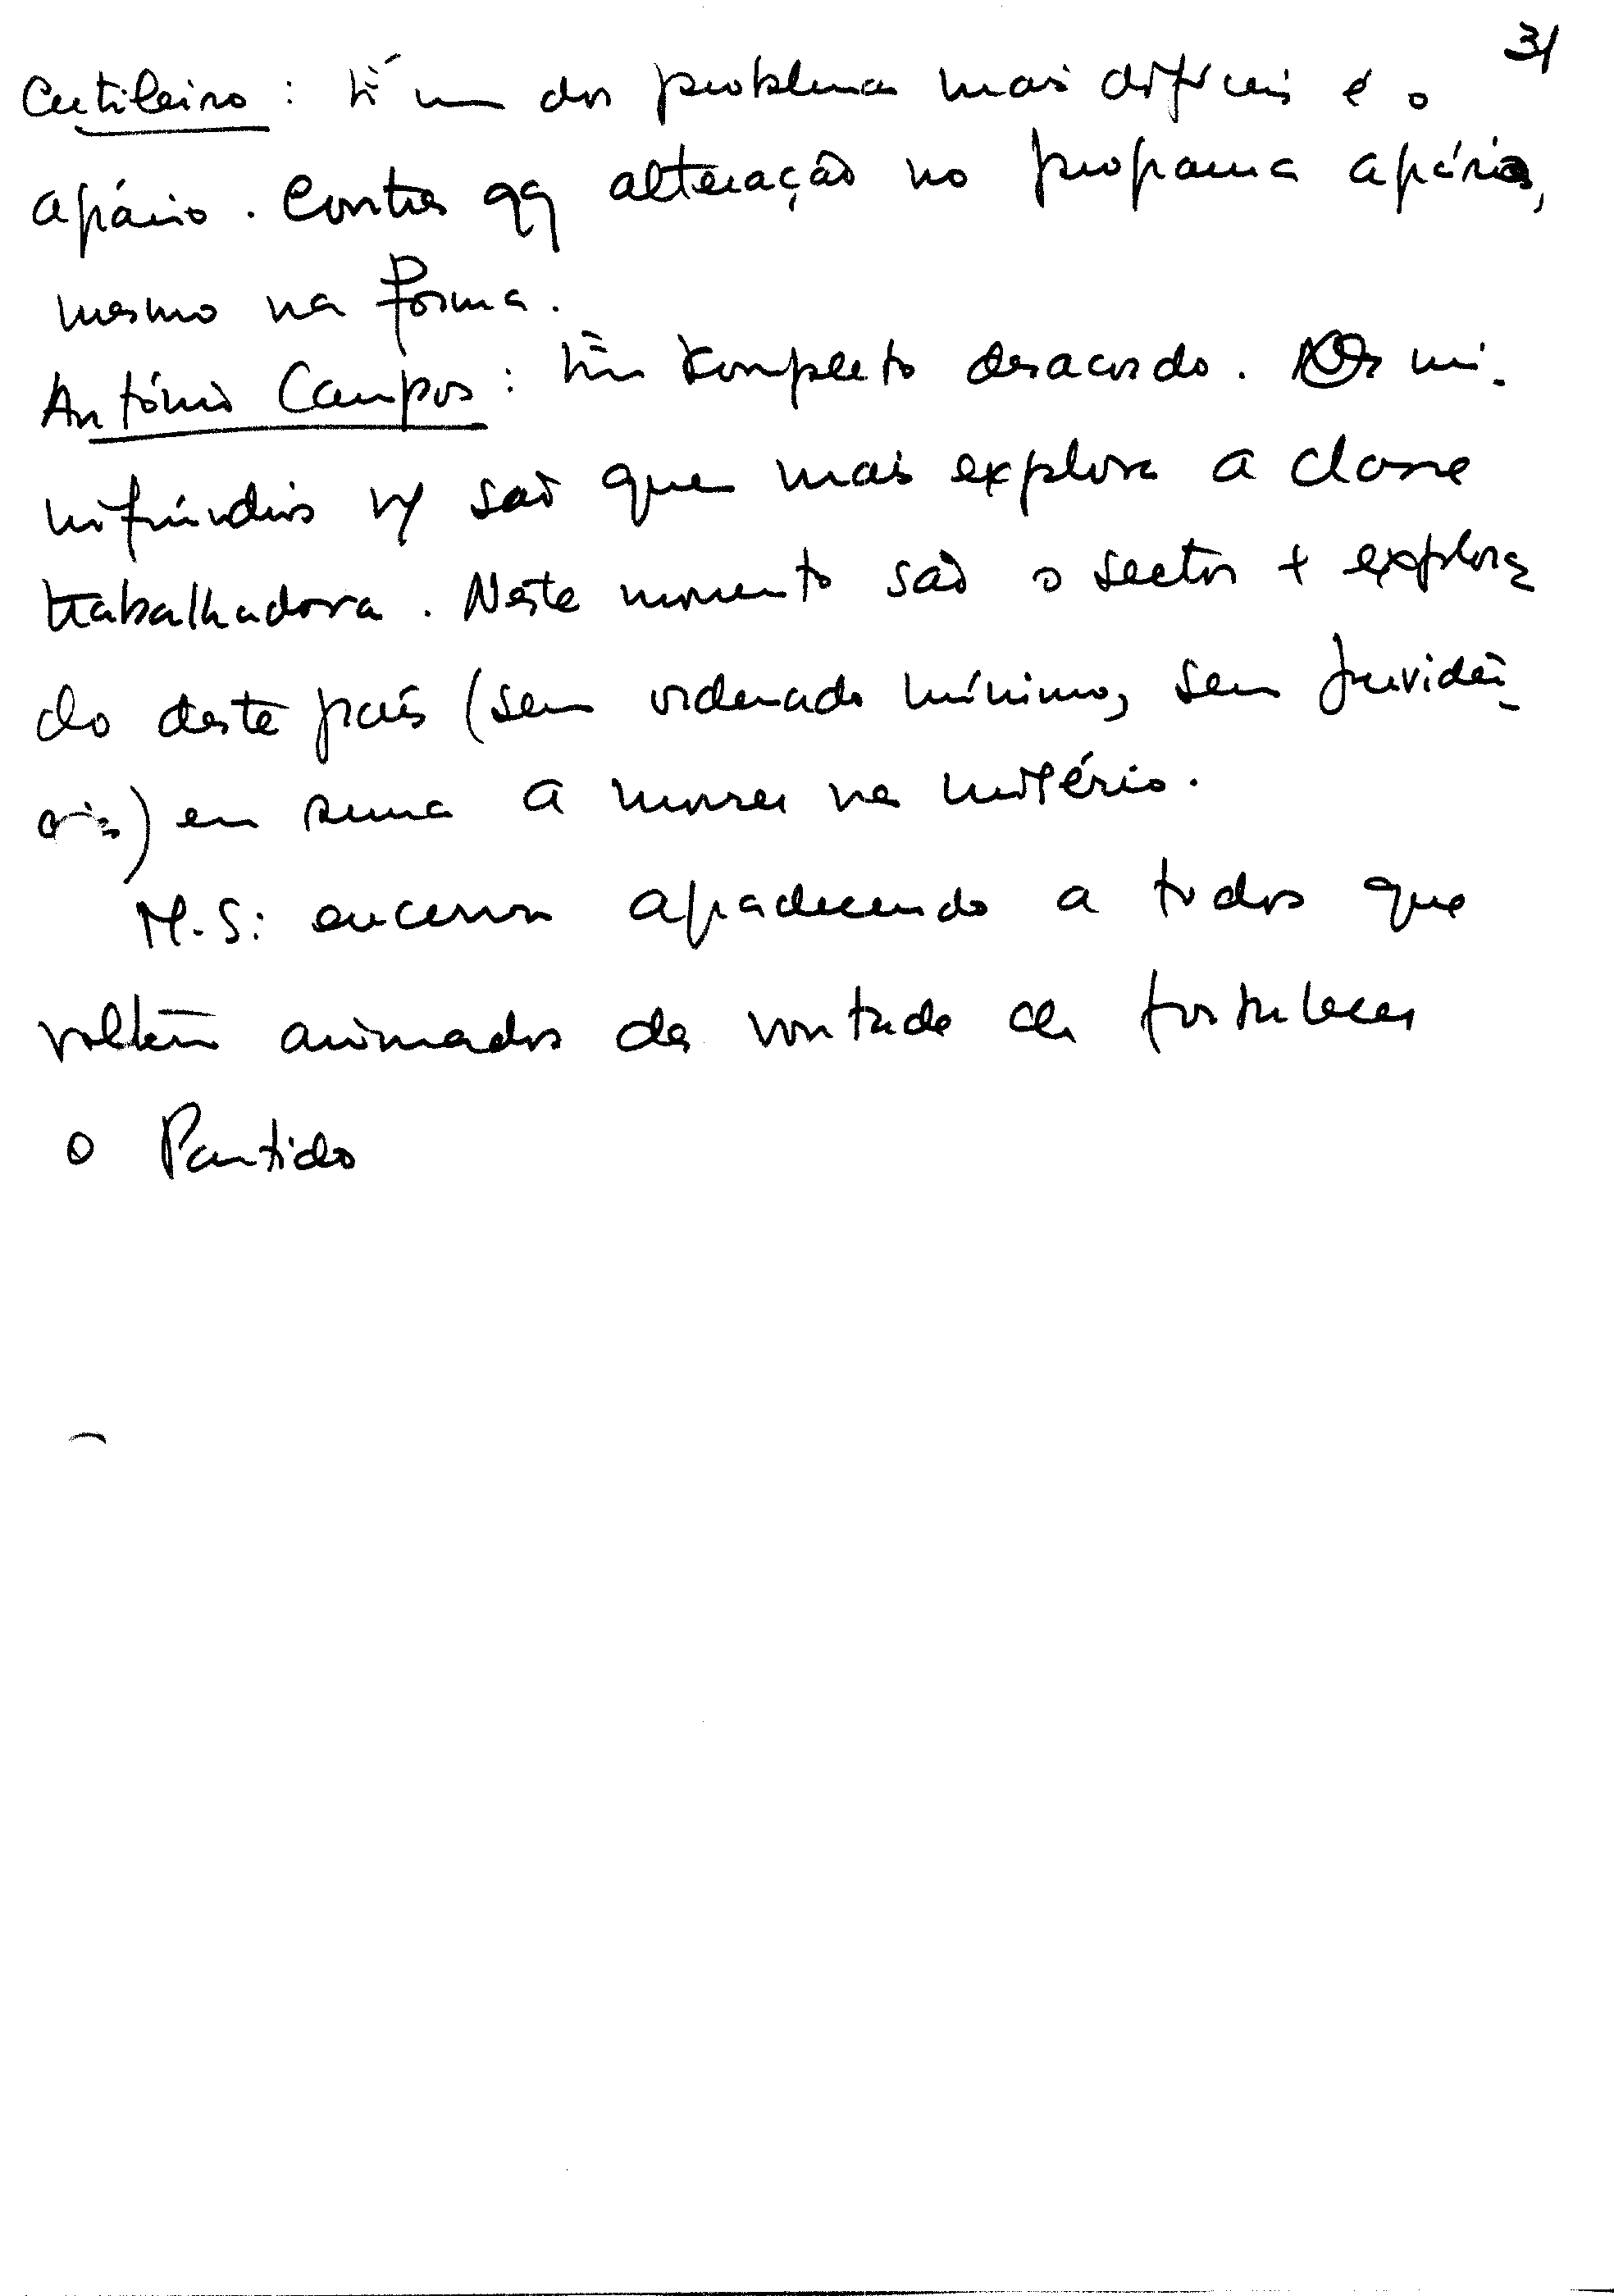 31
Cutileiro: É um dos problemas mais difíceis é o
agrário. Contra qq alteração no programa agrário,
mesmo na forma.
António Campos: Em completo desacordo. Os mi-
nifúndios são quem mais explora a classe
trabalhadora. Neste momento são o sector + explora
do deste país (sem ordenado mínimo, sem previdên-
cia) em suma a morrer na miséria.
M.S: encerra agradecendo a todos que
voltem animados da vontade de fortalecer
o Partido